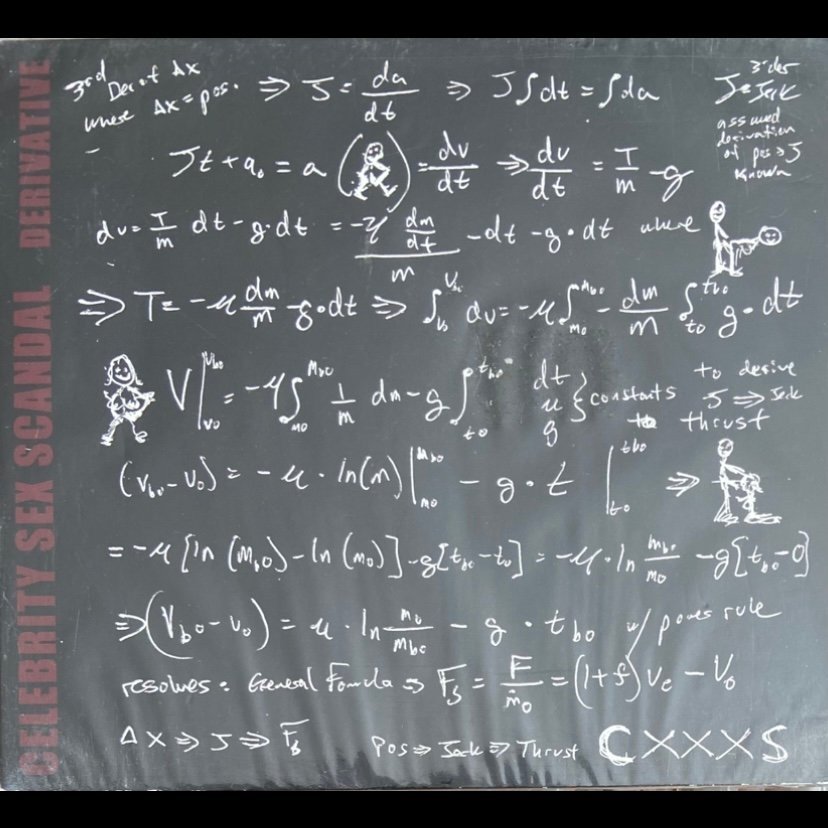 CELEBRITY SEX SCANDAL DERIVATIVE
3rd Der. of Δx ⇒ J = da/dt ⇒ J∫dt = ∫da
where Δx = pos.
3rd der
J = Jerk
assumed
derivation
of pos ⇒ J
known
Jt + a₀ = a ( ) = dv/dt ⇒ dv/dt = T/m - g
dv = T/m dt - g·dt = -μ dm/dt / m - dt - g·dt where
⇒ T = -μ dm/m - g·dt ⇒ ∫ dv = -μ ∫_{m₀}^{m_bo} - dm/m ∫_{t₀}^{t_bo} g·dt
V |_{v₀}^{v_bo} = -μ ∫_{m₀}^{m_bo} 1/m dm - g ∫_{t₀}^{t_bo} dt
μ
g } constants to derive
J ⇒ Jerk
thrust
(V_bo - V₀) = -μ · ln(m) |_{m₀}^{m_bo} - g · t |_{t₀}^{t_bo} ⇒
= -μ [ln (m_bo) - ln (m₀)] - g[t_bo - t₀] = -μ · ln m_bo/m₀ - g[t_bo - 0]
⇒ (V_bo - v₀) = μ · ln m₀/m_bo - g · t_bo w/ power rule
resolves: General Formula ⇒ F_s = F/ṁ₀ = (1+f) V_e - V₀
Δx ⇒ J ⇒ F_s pos ⇒ Jerk ⇒ Thrust CXXXS